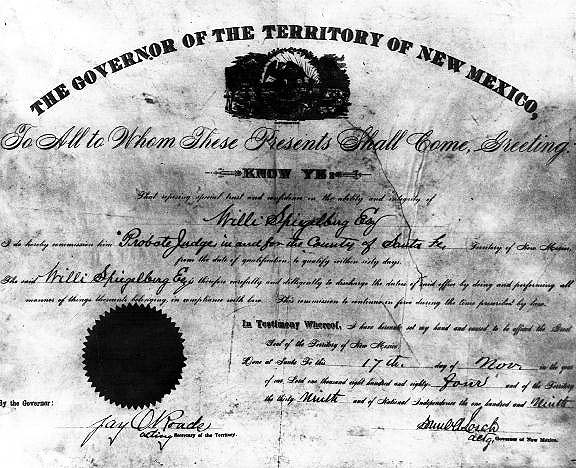 THE GOVERNOR OF THE TERRITORY OF NEW MEXICO,
To All to Whom These Presents Shall Come, Greeting:
KNOW YE:
That reposing special trust and confidence in the ability and integrity of
Willi Spiegelberg Esq
I do hereby commission him "Probate Judge in and for the County of Santa Fe Territory of New Mexico,
from the date of qualification, to qualify within sixty days.
The said Willi Spiegelberg Esq, therefore carefully and diligently to discharge the duties of said office by doing and performing all
manner of things thereunto belonging, in compliance with law. This commission to continue in force during the time prescribed by law.
In Testimony Whereof, I have hereunto set my hand and caused to be affixed the Great
Seal of the Territory of New Mexico
Done at Santa Fe this 17th. day of Nov in the year
of our Lord one thousand eight hundred and eighty four and of the Territory
the thirty Ninth and of National Independence the one hundred and Ninth
By the Governor:
Acting Secretary of the Territory.
Actg. Governor of New Mexico.